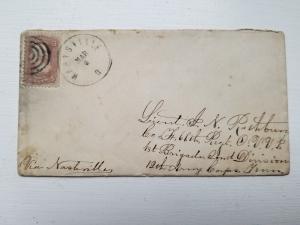 MARYSVILLE O
MAR
Lieut. A. N. Rathbun
Co. F. 66th Regt. O.V.V.I.
1st Brigade 2nd Division
12th Army Corps Tenn
Via Nashville